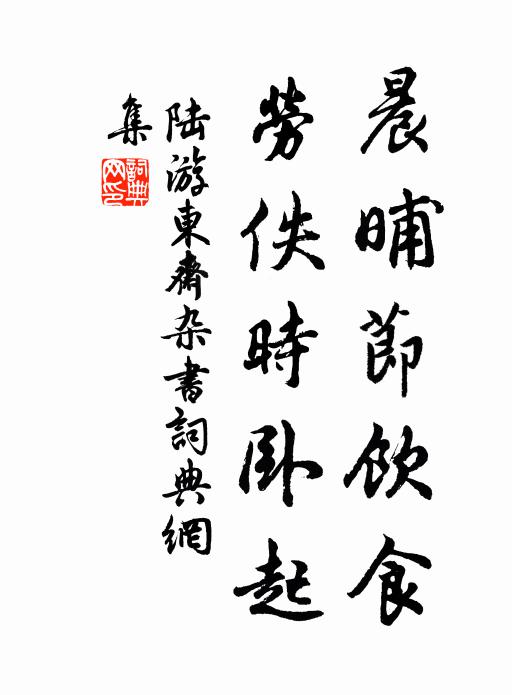 晨晡節飲食
勞佚時卧起
陸游東齋杂書詞典網
集
詞典網印